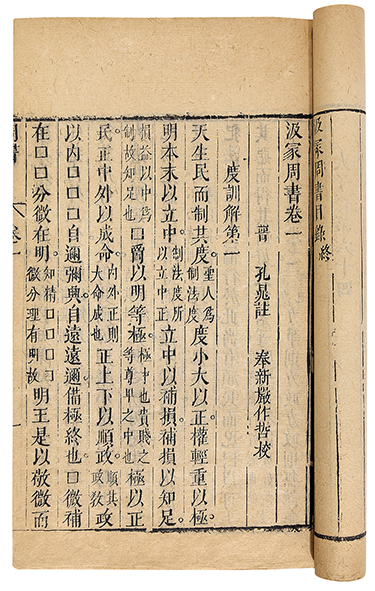 汲冢周書目錄終
汲冢周書卷一
晉 孔晁註 奉新嚴作哲校
度訓解第一
天生民而制其度 聖人爲制法度 度小大以正權輕重以極
明本末以立中 制法度所以立中正 立中以補損補損以知足
損益以中爲制故知足也 口爵以明等極 極中也貴賤之等尊卑之中也 極以正
民正中外以成命 內外正則大命成也 正上下以順政 順其政敎 政
以內口口口自邇彌興自遠遠邇備極終也口微補
在口口分微在明 知精口口口口微分理有明故 明王是以敬微而
卷一